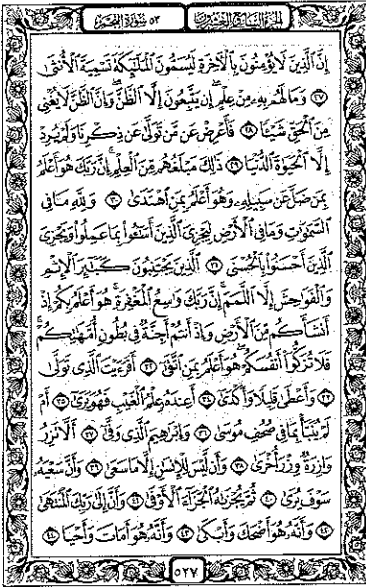 الجزء السابع والعشرون
٥٣ سورة النجم
إِنَّ ٱلَّذِينَ لَا يُؤْمِنُونَ بِٱلْأٓخِرَةِ لَيُسَمُّونَ ٱلْمَلَٰٓئِكَةَ تَسْمِيَةَ ٱلْأُنثَىٰ
٢٧ وَمَا لَهُم بِهِۦ مِنْ عِلْمٍ إِن يَتَّبِعُونَ إِلَّا ٱلظَّنَّ وَإِنَّ ٱلظَّنَّ لَا يُغْنِى
مِنَ ٱلْحَقِّ شَيْـًٔا ٢٨ فَأَعْرِضْ عَن مَّن تَوَلَّىٰ عَن ذِكْرِنَا وَلَمْ يُرِدْ
إِلَّا ٱلْحَيَوٰةَ ٱلدُّنْيَا ٢٩ ذَٰلِكَ مَبْلَغُهُم مِّنَ ٱلْعِلْمِ إِنَّ رَبَّكَ هُوَ أَعْلَمُ
بِمَن ضَلَّ عَن سَبِيلِهِۦ وَهُوَ أَعْلَمُ بِمَنِ ٱهْتَدَىٰ ٣٠ وَلِلَّهِ مَا فِى
ٱلسَّمَٰوَٰتِ وَمَا فِى ٱلْأَرْضِ لِيَجْزِىَ ٱلَّذِينَ أَسَٰٓـُٔوا۟ بِمَا عَمِلُوا۟ وَيَجْزِىَ
ٱلَّذِينَ أَحْسَنُوا۟ بِٱلْحُسْنَى ٣١ ٱلَّذِينَ يَجْتَنِبُونَ كَبَٰٓئِرَ ٱلْإِثْمِ
وَٱلْفَوَٰحِشَ إِلَّا ٱللَّمَمَ إِنَّ رَبَّكَ وَٰسِعُ ٱلْمَغْفِرَةِ هُوَ أَعْلَمُ بِكُمْ إِذْ
أَنشَأَكُم مِّنَ ٱلْأَرْضِ وَإِذْ أَنتُمْ أَجِنَّةٌ فِى بُطُونِ أُمَّهَٰتِكُمْ
فَلَا تُزَكُّوٓا۟ أَنفُسَكُمْ هُوَ أَعْلَمُ بِمَنِ ٱتَّقَىٰٓ ٣٢ أَفَرَءَيْتَ ٱلَّذِى تَوَلَّىٰ
٣٣ وَأَعْطَىٰ قَلِيلًا وَأَكْدَىٰٓ ٣٤ أَعِندَهُۥ عِلْمُ ٱلْغَيْبِ فَهُوَ يَرَىٰٓ ٣٥ أَمْ
لَمْ يُنَبَّأْ بِمَا فِى صُحُفِ مُوسَىٰ ٣٦ وَإِبْرَٰهِيمَ ٱلَّذِى وَفَّىٰٓ ٣٧ أَلَّا تَزِرُ
وَازِرَةٌ وِزْرَ أُخْرَىٰ ٣٨ وَأَن لَّيْسَ لِلْإِنسَٰنِ إِلَّا مَا سَعَىٰ ٣٩ وَأَنَّ سَعْيَهُۥ
سَوْفَ يُرَىٰ ٤٠ ثُمَّ يُجْزَىٰهُ ٱلْجَزَآءَ ٱلْأَوْفَىٰ ٤١ وَأَنَّ إِلَىٰ رَبِّكَ ٱلْمُنتَهَىٰ
٤٢ وَأَنَّهُۥ هُوَ أَضْحَكَ وَأَبْكَىٰ ٤٣ وَأَنَّهُۥ هُوَ أَمَاتَ وَأَحْيَا ٤٤
٥٢٧